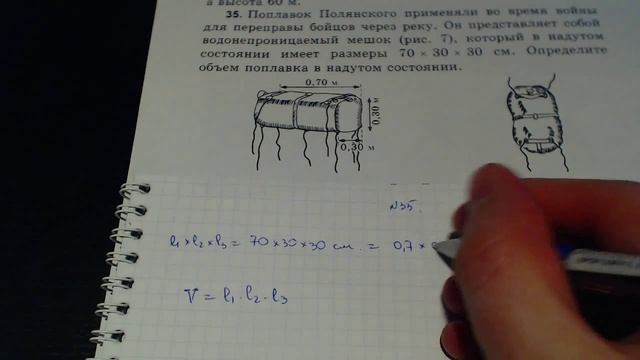 а высота 60 м.
35. Поплавок Полянского применяли во время войны
для переправы бойцов через реку. Он представляет собой
водонепроницаемый мешок (рис. 7), который в надутом
состоянии имеет размеры 70 × 30 × 30 см. Определите
объем поплавка в надутом состоянии.
0,70 м
0,30 м
0,30 м
№35.
l₁ × l₂ × l₃ = 70 × 30 × 30 см = 0,7 ×
V = l₁ · l₂ · l₃